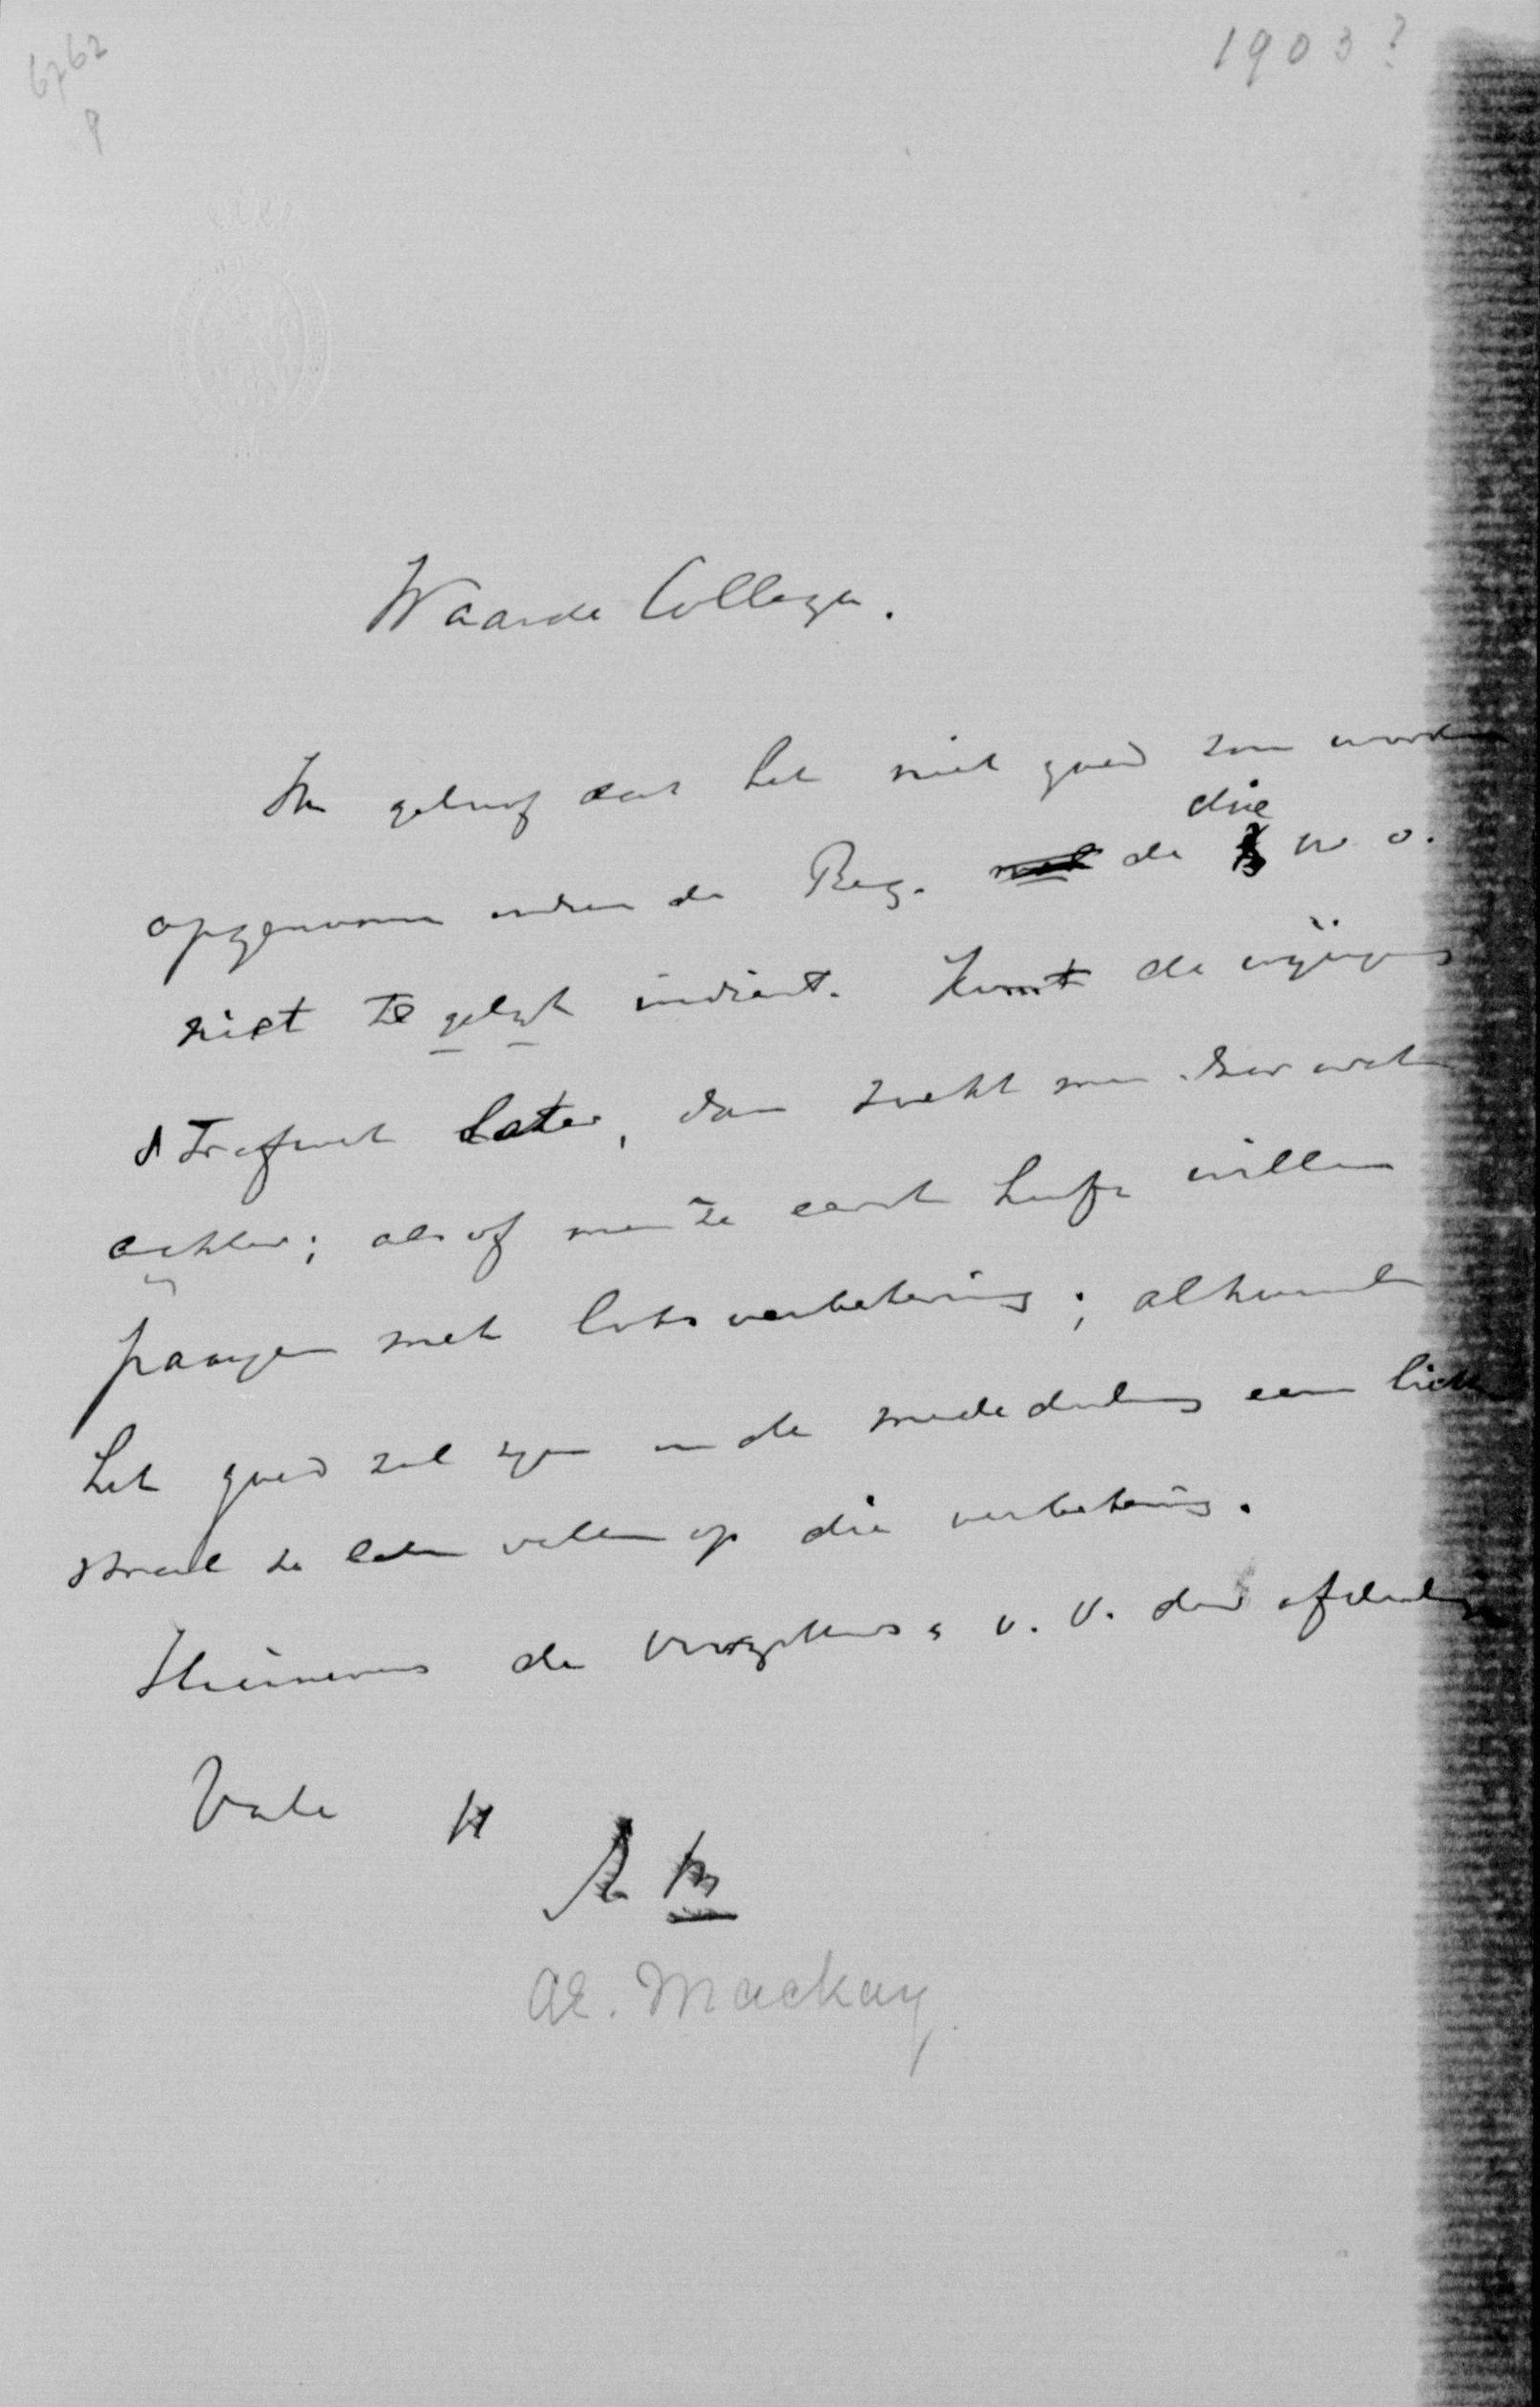 6762
8
1903?
Waarde Collega.
Ik geloof dat het niet goed zou worden
die
opgenomen indien de Reg. de w o.
niet te gelijk indient. Komt de wijziging
strafwet later, dan zoekt men daar wat
achter; alsof men ze eerst heeft willen
paaijen met lotsverbetering; alhoewel
het goed zal zijn in de mededeeling een licht
straal te laten vallen op die verbetering.
Hiernevens de voorzitters & v. v. der afdeelingen
Vale
AE. Mackay